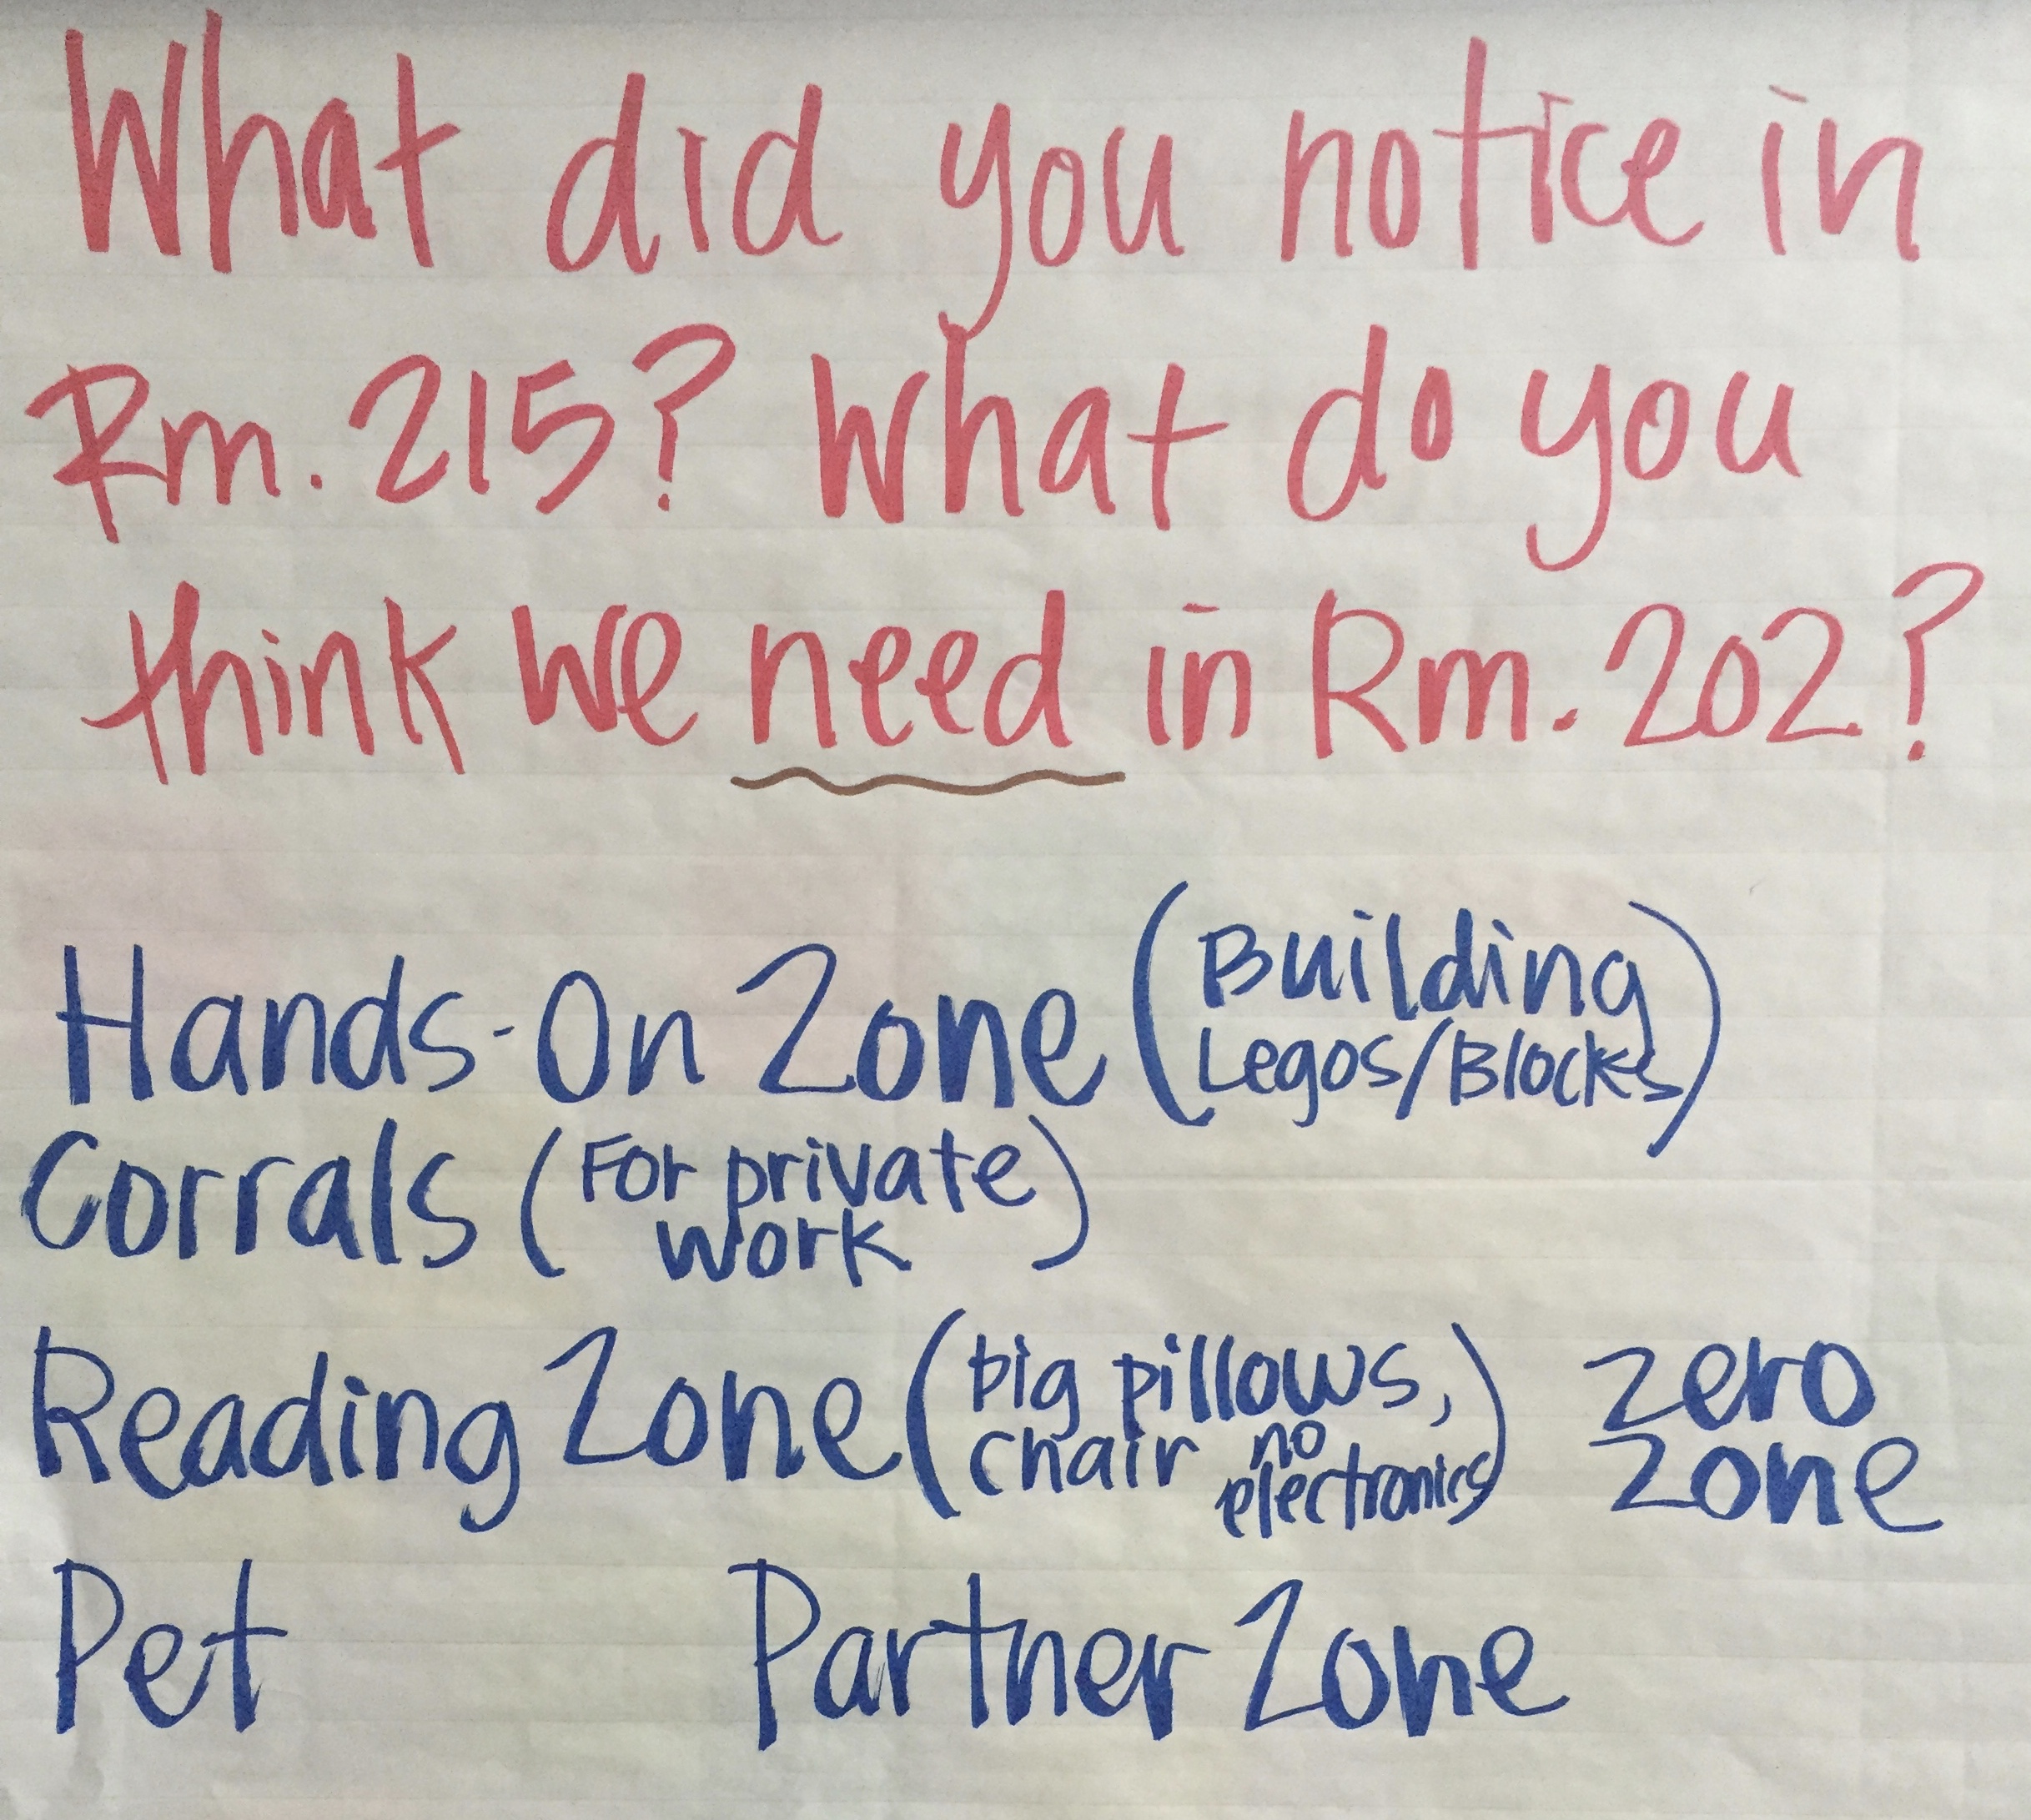 What did you notice in
Rm. 215? What do you
think we need in Rm. 202?
Hands-On Zone (Building
Legos/Blocks)
Corrals (For private
work)
Reading Zone (big pillows,
chair no
electronics)
zero
zone
Pet
Partner Zone